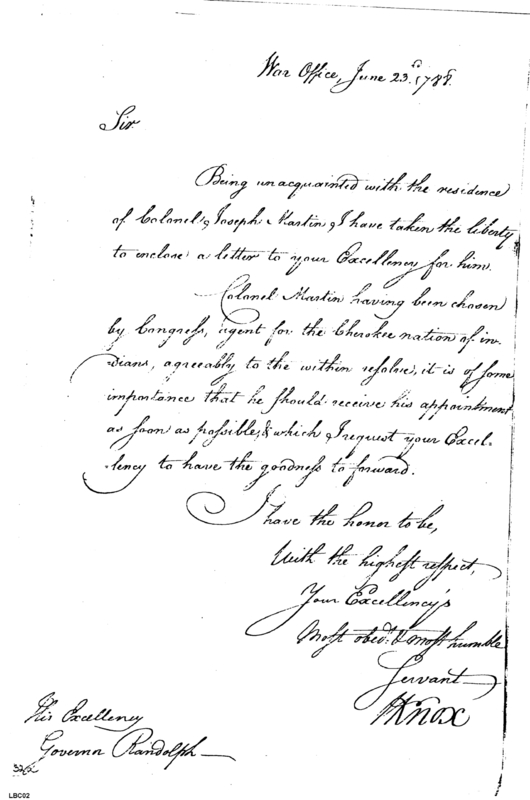 War Office, June 23d. 1788.
Sir
Being unacquainted with the residence
of Colonel Joseph Martin, I have taken the liberty
to enclose a letter to your Excellency for him.
Colonel Martin having been chosen
by Congress, agent for the Cherokee nation of in-
dians, agreeably to the within resolve, it is of some
importance that he should receive his appointment
as soon as possible, & which I request your Excel-
lency to have the goodness to forward.
I have the honor to be,
With the highest respect,
Your Excellency's
Most obedt. & most humble
Servant
HKnox
His Excellency
Governor Randolph
LBC02